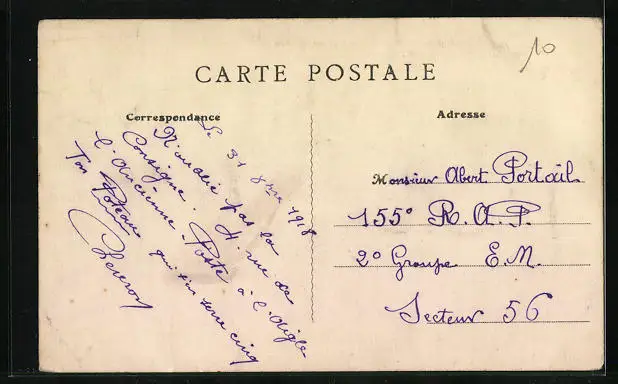 10
CARTE POSTALE
Correspondance
Le 31 8bre 1918
N'oublie pas la
Consigne. 4. rue de
l'Ancienne Poste à l'Aigle
Ton Poteau qui t'en serre cinq
Adresse
Monsieur Albert Portail
155° R.A.P.
2° Groupe E.M.
Secteur 56